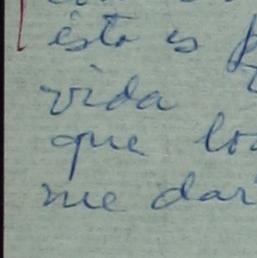 ésto es
vida
que lo
me dar